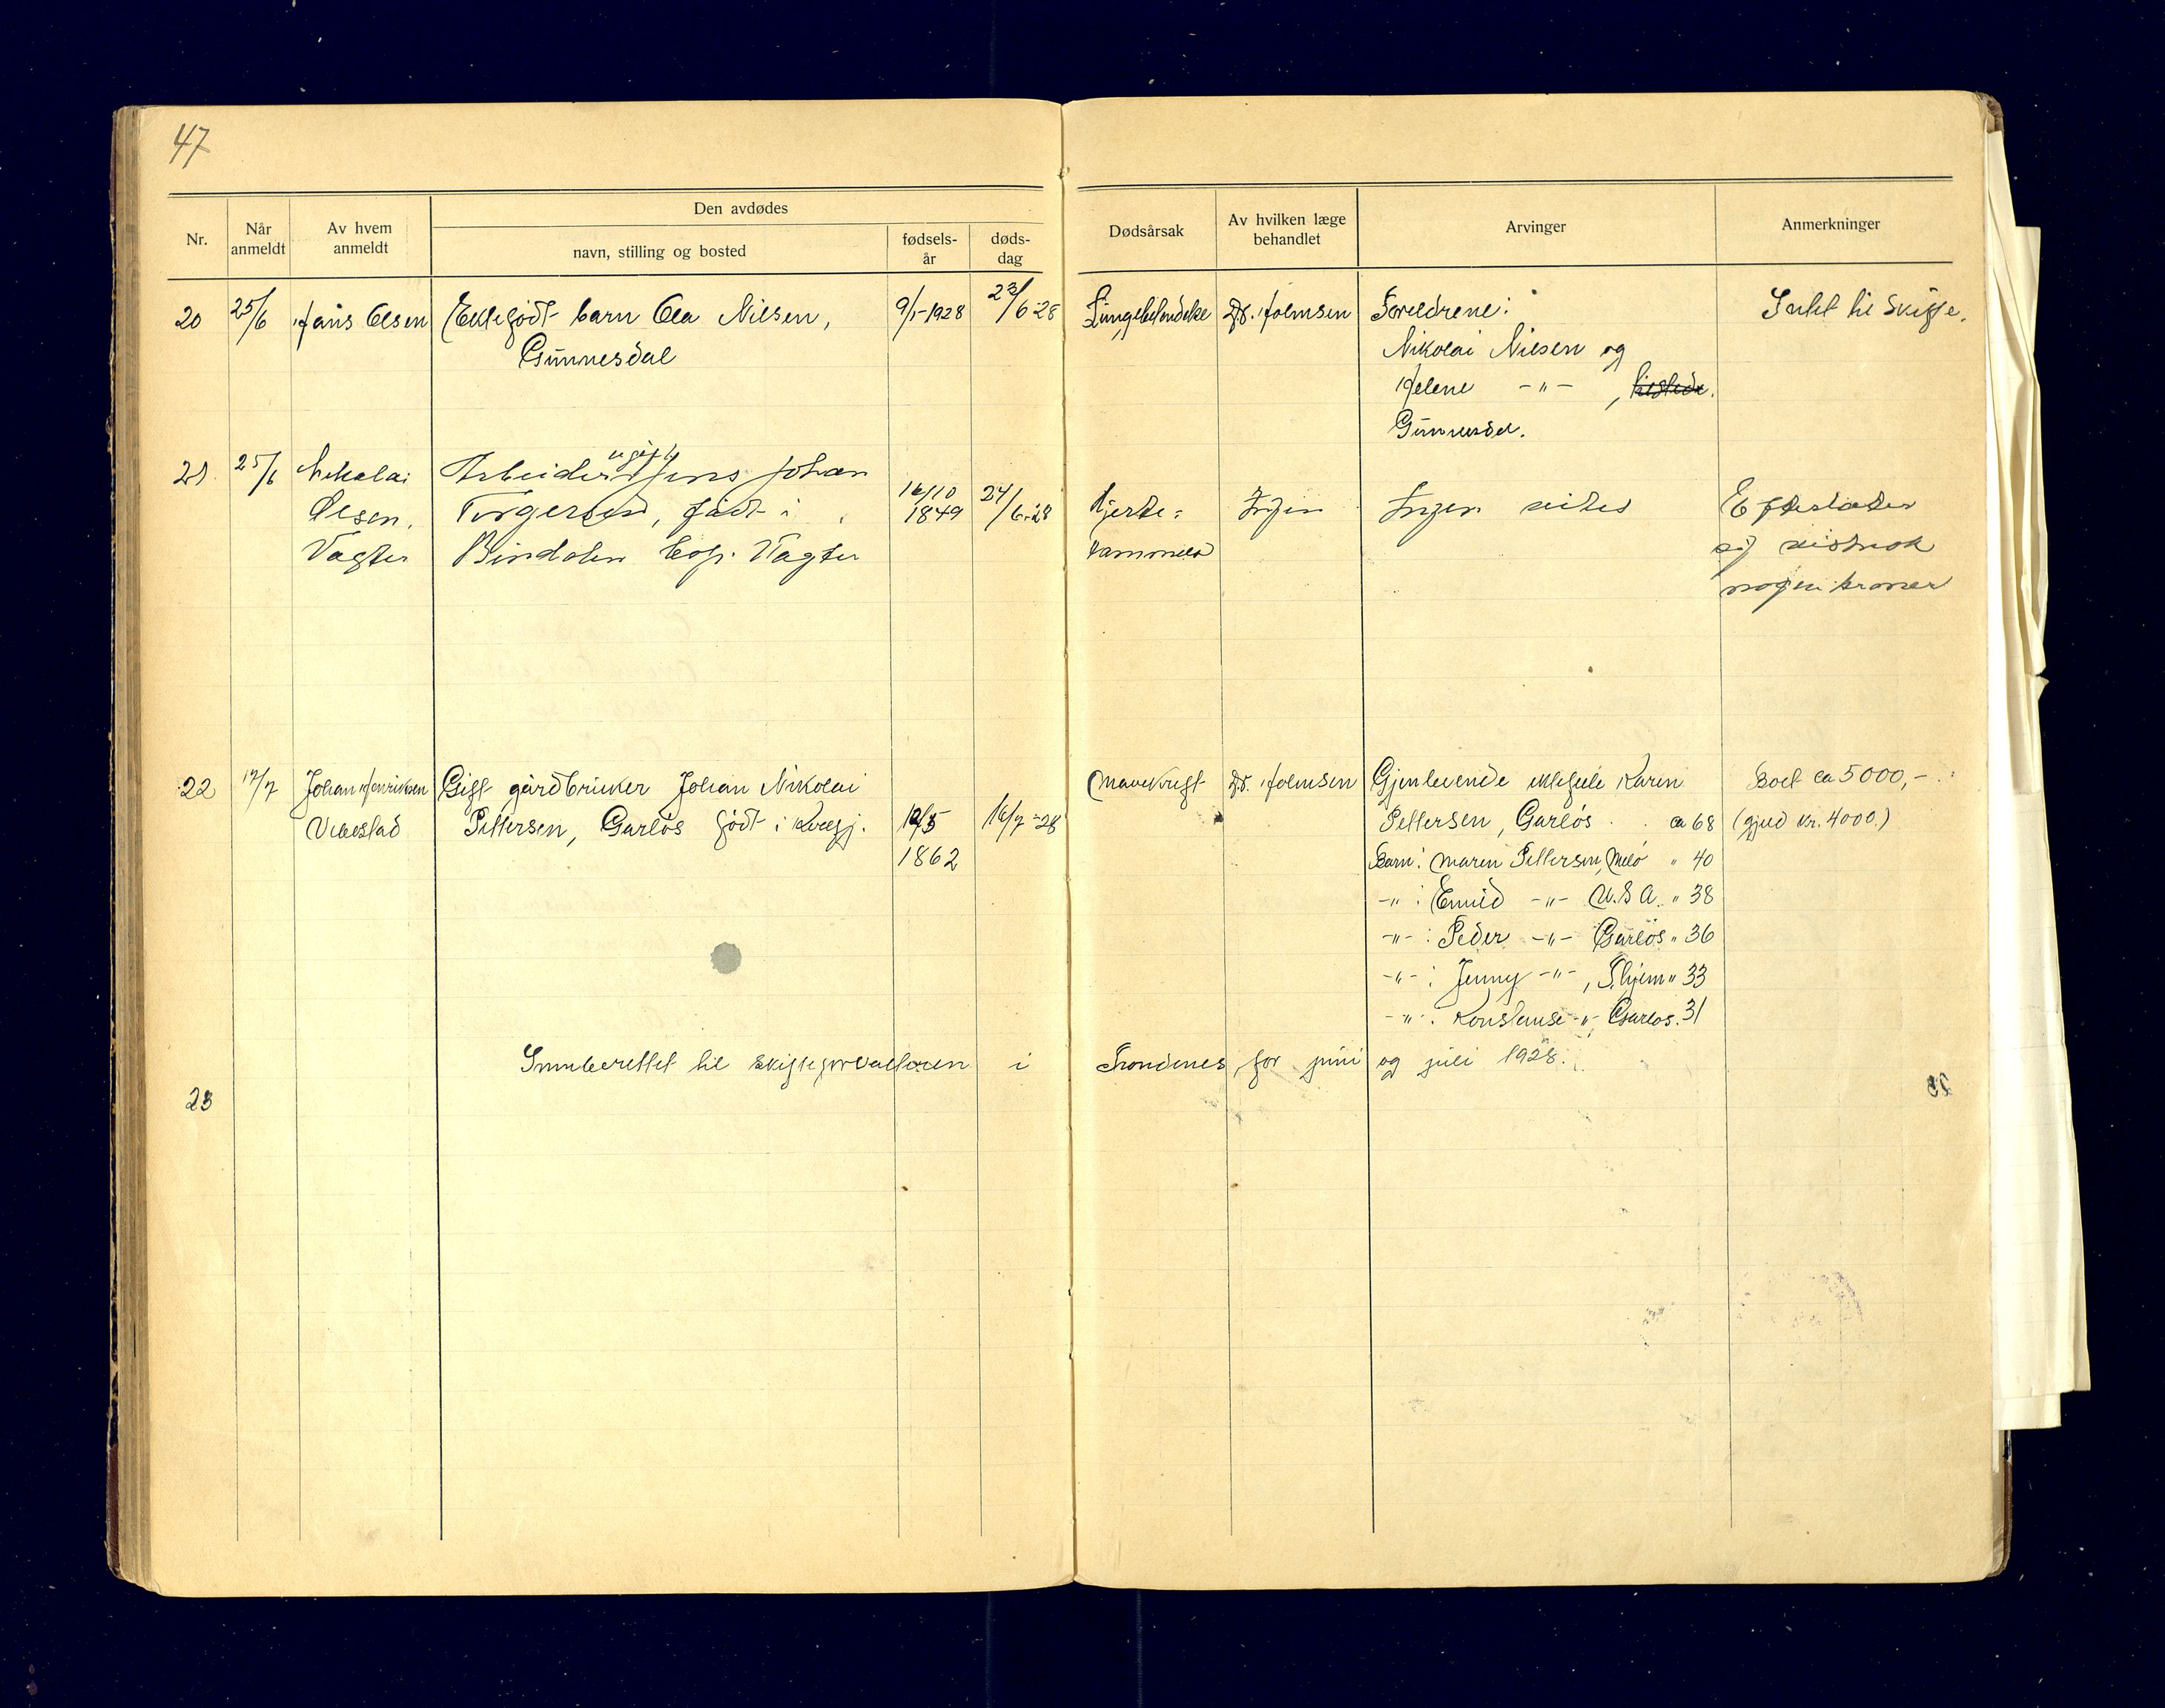 47
Nr.
Når anmeldt
Av hvem anmeldt
Den avdødes
navn, stilling og bosted
fødsels-år
døds-dag
Dødsårsak
Av hvilken læge behandlet
Arvinger
Anmerkninger
20 25/6 Hans Olsen Ektefødt barn Ola Nilsen, 9/1-1928 23/6-28 Lungebetendelse Dr. Holmsen Foreldrene: Intet til skifte.
Gunnesdal Nikolai Nilsen og
Helene -"- ,
Gunnesdal.
21. 25/6 Nikolai Arbeider ugift Jens Johan
Olsen. Torgersen, født i 16/10 1849 24/6-28 Hjerte= Ingen Ingen vites Efterlader
Vagten Bindalen bop. Vagten sig
nogen kroner
22 17/7 Johan Henriksen Gift gårdbruker Johan Nikolai Mavekreft Dr. Holmsen Gjenlevende ektefelle Karen Boet ca 5000,-
Vikestad Pettersen, Garløs født i Kvefj. 12/5 16/7-28 Pettersen, Garløs ca 68 (gjeld kr. 4000.)
1862 Barn: Maren Pettersen, Melø " 40
-"- : -"- U.S.A. " 38
-"- : Peder -"- Garløs " 36
-"- : Jenny -"- , " 33
-"- : Konstanse -"- Garløs. 31
Innberettet til skifteforvalteren i Trondenes for juni og juli 1928.
23